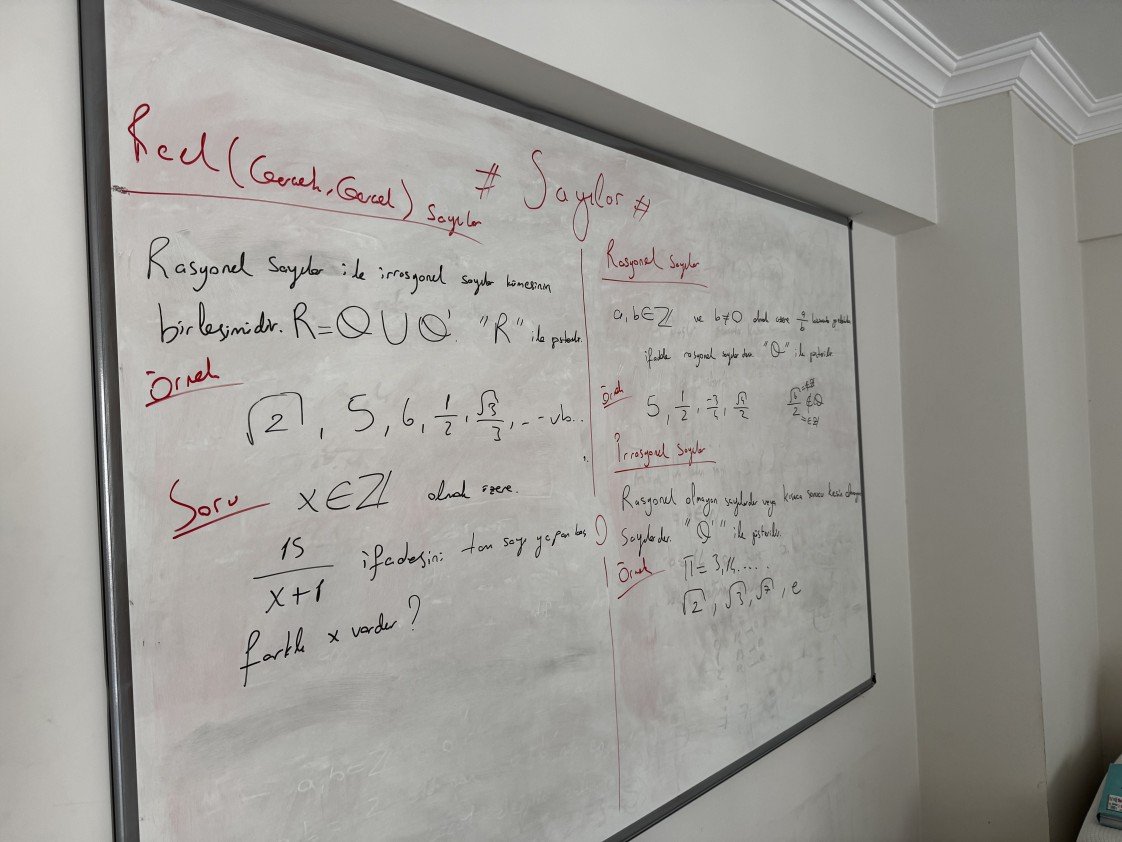 # Sayılar #
Reel (Gerçek, Gerçel) Sayılar
Rasyonel Sayılar ile irrasyonel sayılar kümesinin
birleşimidir. R = Q ∪ Q'. "R" ile gösterilir.
Örnek
√2, 5, 6, 1/2, √3/3, ... vb...
Soru x ∈ Z olmak üzere.
15/(x+1) ifadesini tam sayı yapan kaç
farklı x vardır?
Rasyonel Sayılar
a, b ∈ Z ve b ≠ 0 olmak üzere a/b
ifadeler rasyonel sayılardır. "Q" ile gösterilir.
Örnek
5, 1/2, -3/4, √4/2
∉Z
∉ Q
=∈Z
İrrasyonel Sayılar
Rasyonel olmayan sayılardır veya kısaca sonucu kesin olmayan
Sayılardır. "Q'" ile gösterilir.
Örnek π = 3,14.....
√2, √3, √7, e